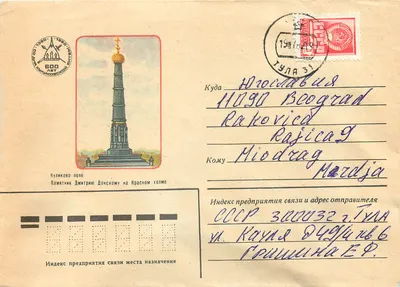 600
ЛЕТ
ТУЛА 31
СССР
Куликово поле
Памятник Дмитрию Донскому на Красном холме
Куда Югославия
11090 Beograd
Rakovica
Rajica 9
Кому Miodrag
Mardja
Индекс предприятия связи и адрес отправителя
СССР 300032 г. Тула
ул. Кауля кв 6
Гришина Е.Ф.
Индекс предприятия связи места назначения